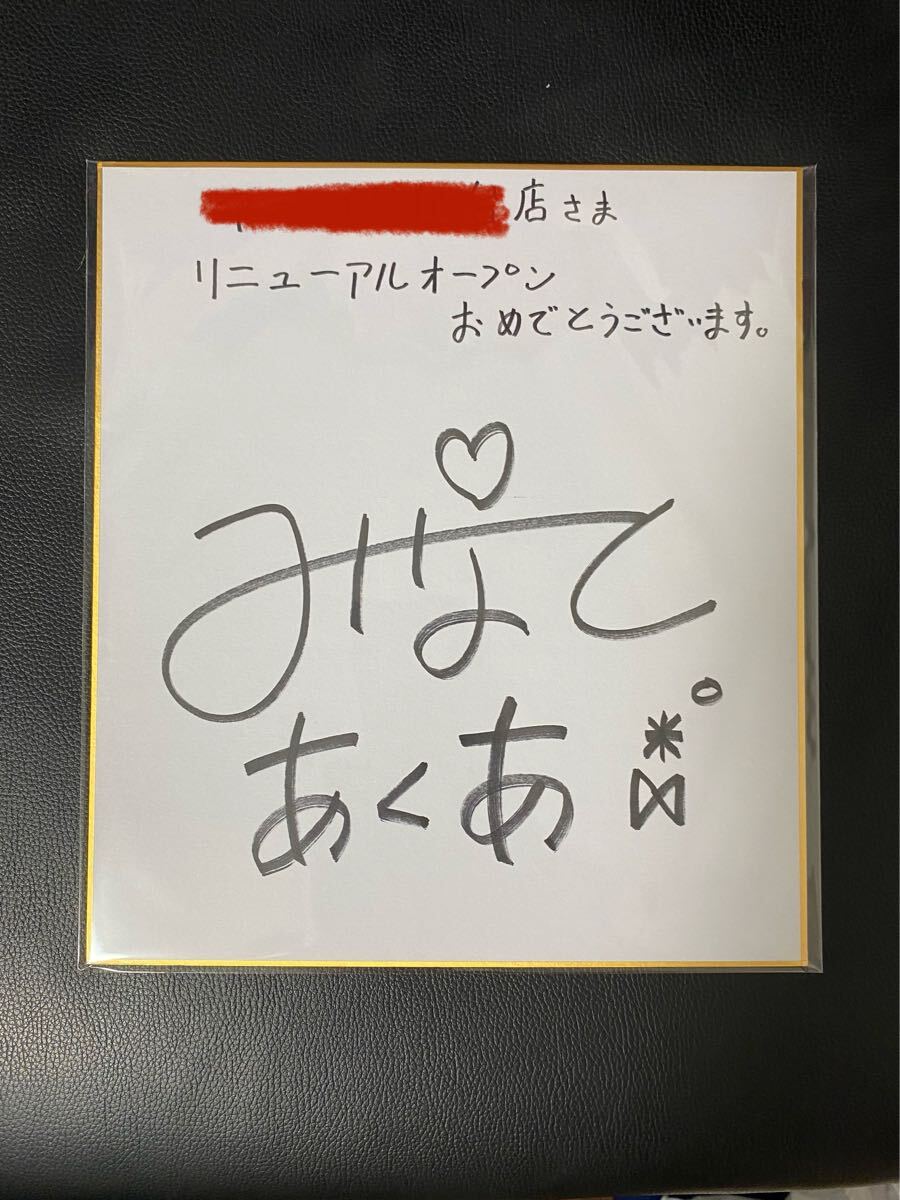 店さま
リニューアルオープン
おめでとうございます。
みなと
あくあ